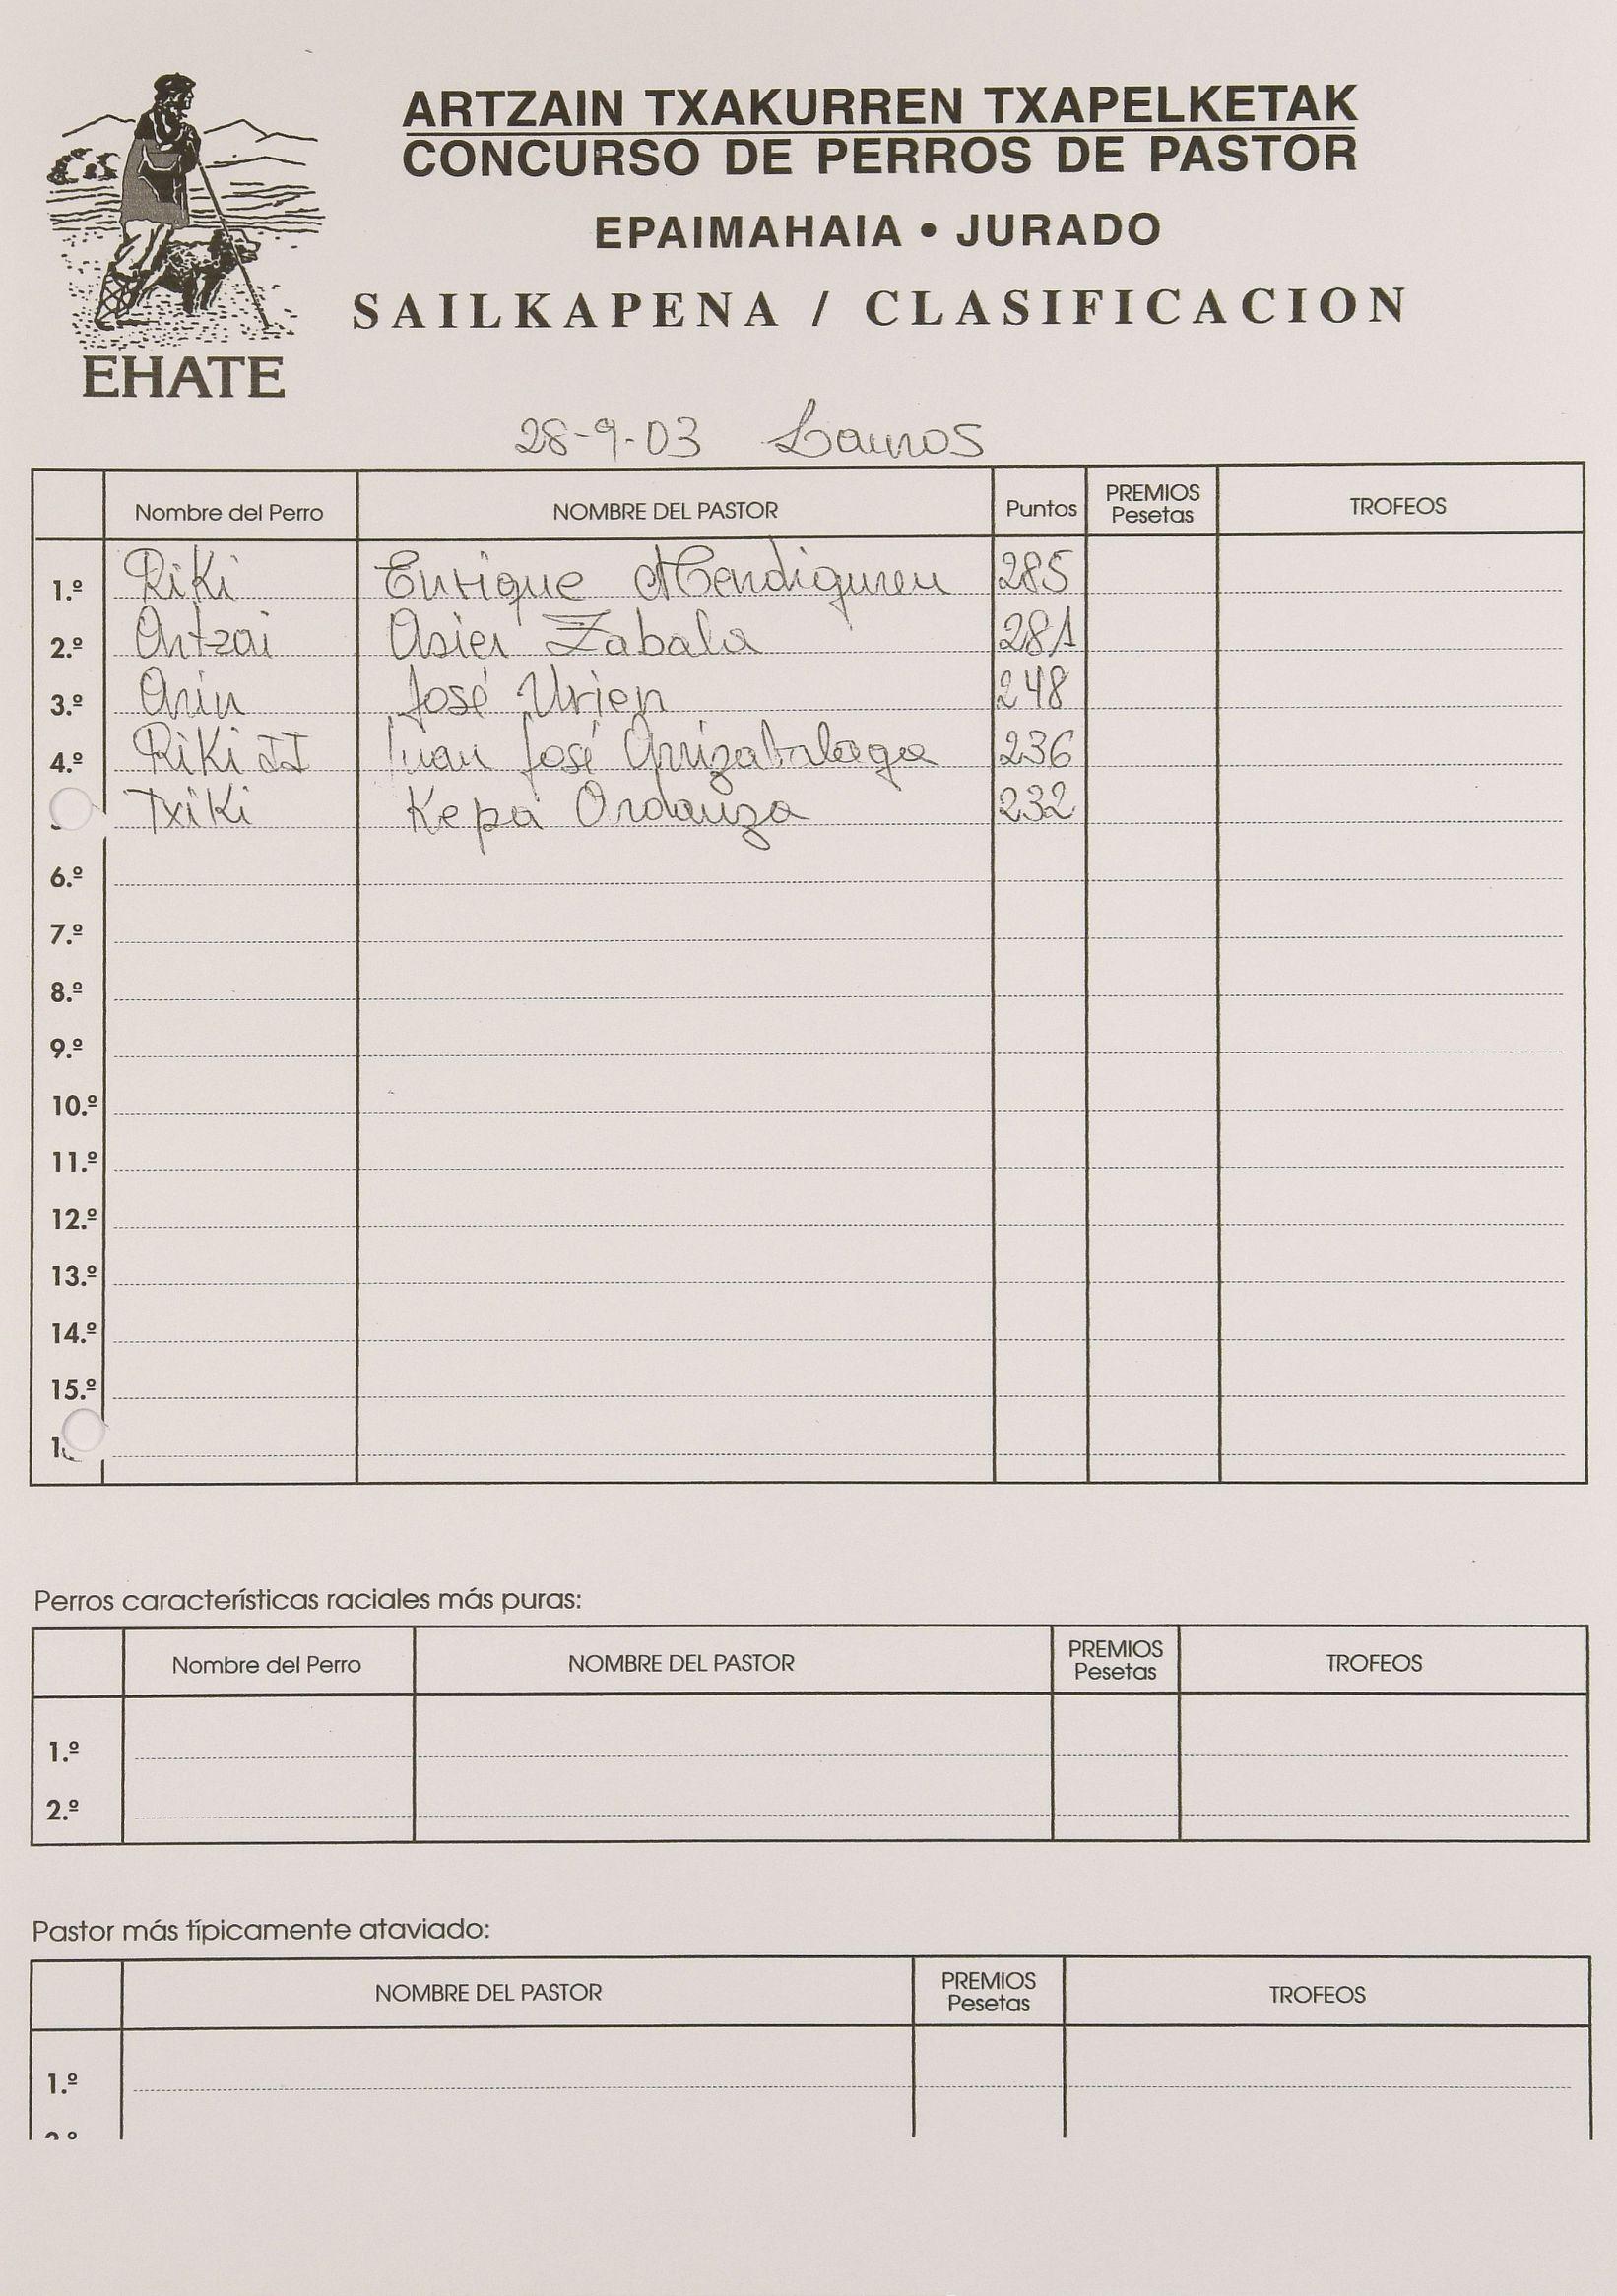 ARTZAIN TXAKURREN TXAPELKETAK
CONCURSO DE PERROS DE PASTOR
EPAIMAHAIA • JURADO
SAILKAPENA / CLASIFICACION
EHATE
28-9-03
Nombre del Perro NOMBRE DEL PASTOR Puntos PREMIOS Pesetas TROFEOS
1.º Riki Enrique Mendiguren 285
2.º Artzai Asier Zabala 281
3.º Arin José Urien 248
4.º Riki II Juan José Arrizabalaga 236
Txiki Kepa Ordauza 232
6.º
7.º
8.º
9.º
10.º
11.º
12.º
13.º
14.º
15.º
Perros características raciales más puras:
Nombre del Perro NOMBRE DEL PASTOR PREMIOS Pesetas TROFEOS
1.º
2.º
Pastor más típicamente ataviado:
NOMBRE DEL PASTOR PREMIOS Pesetas TROFEOS
1.º